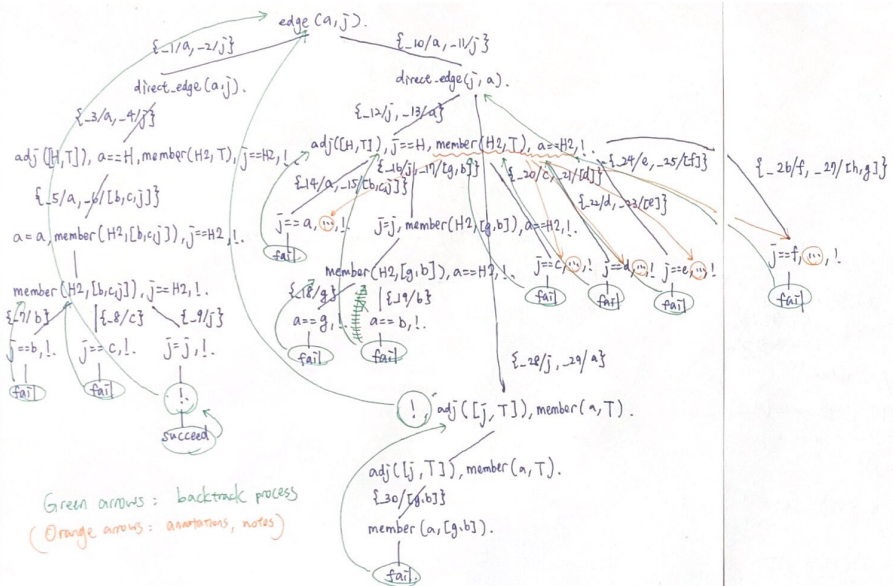 edge(a,j).
{_1/a, _2/j}
{_10/a, _11/j}
direct_edge(a,j).
direct_edge(j,a).
{_3/a, _4/j}
{_12/j, _13/a}
adj([H,T]), a==H, member(H2,T), j==H2, !.
adj([H,T]), j==H, member(H2,T), a==H2, !.
{_5/a, _6/[b,c,j]}
{_14/a, _15/[b,c,j]}
{_16/j, _17/[g,b]}
{_20/c, _21/[d]}
{_22/d, _23/[e]}
{_24/e, _25/[f]}
{_26/f, _27/[h,g]}
a=a, member(H2,[b,c,j]), j==H2, !.
j==a, ..., !.
fail
j=j, member(H2,[g,b]), a==H2, !.
j==c, ..., !.
fail
j==d, ..., !.
fail
j==e, ..., !.
fail
j==f, ..., !.
fail
member(H2,[b,c,j]), j==H2, !.
member(H2,[g,b]), a==H2, !.
{_7/b}
{_8/c}
{_9/j}
{_18/g}
{_19/b}
j==b, !.
j==c, !.
j=j, !.
a==g, !.
a==b, !.
fail
fail
!
succeed
fail
fail
{_28/j, _29/a}
!
adj([j,T]), member(a,T).
adj([j,T]), member(a,T).
{_30/[g,b]}
member(a,[g,b]).
fail
Green arrows: backtrack process
(Orange arrows: annotations, notes)